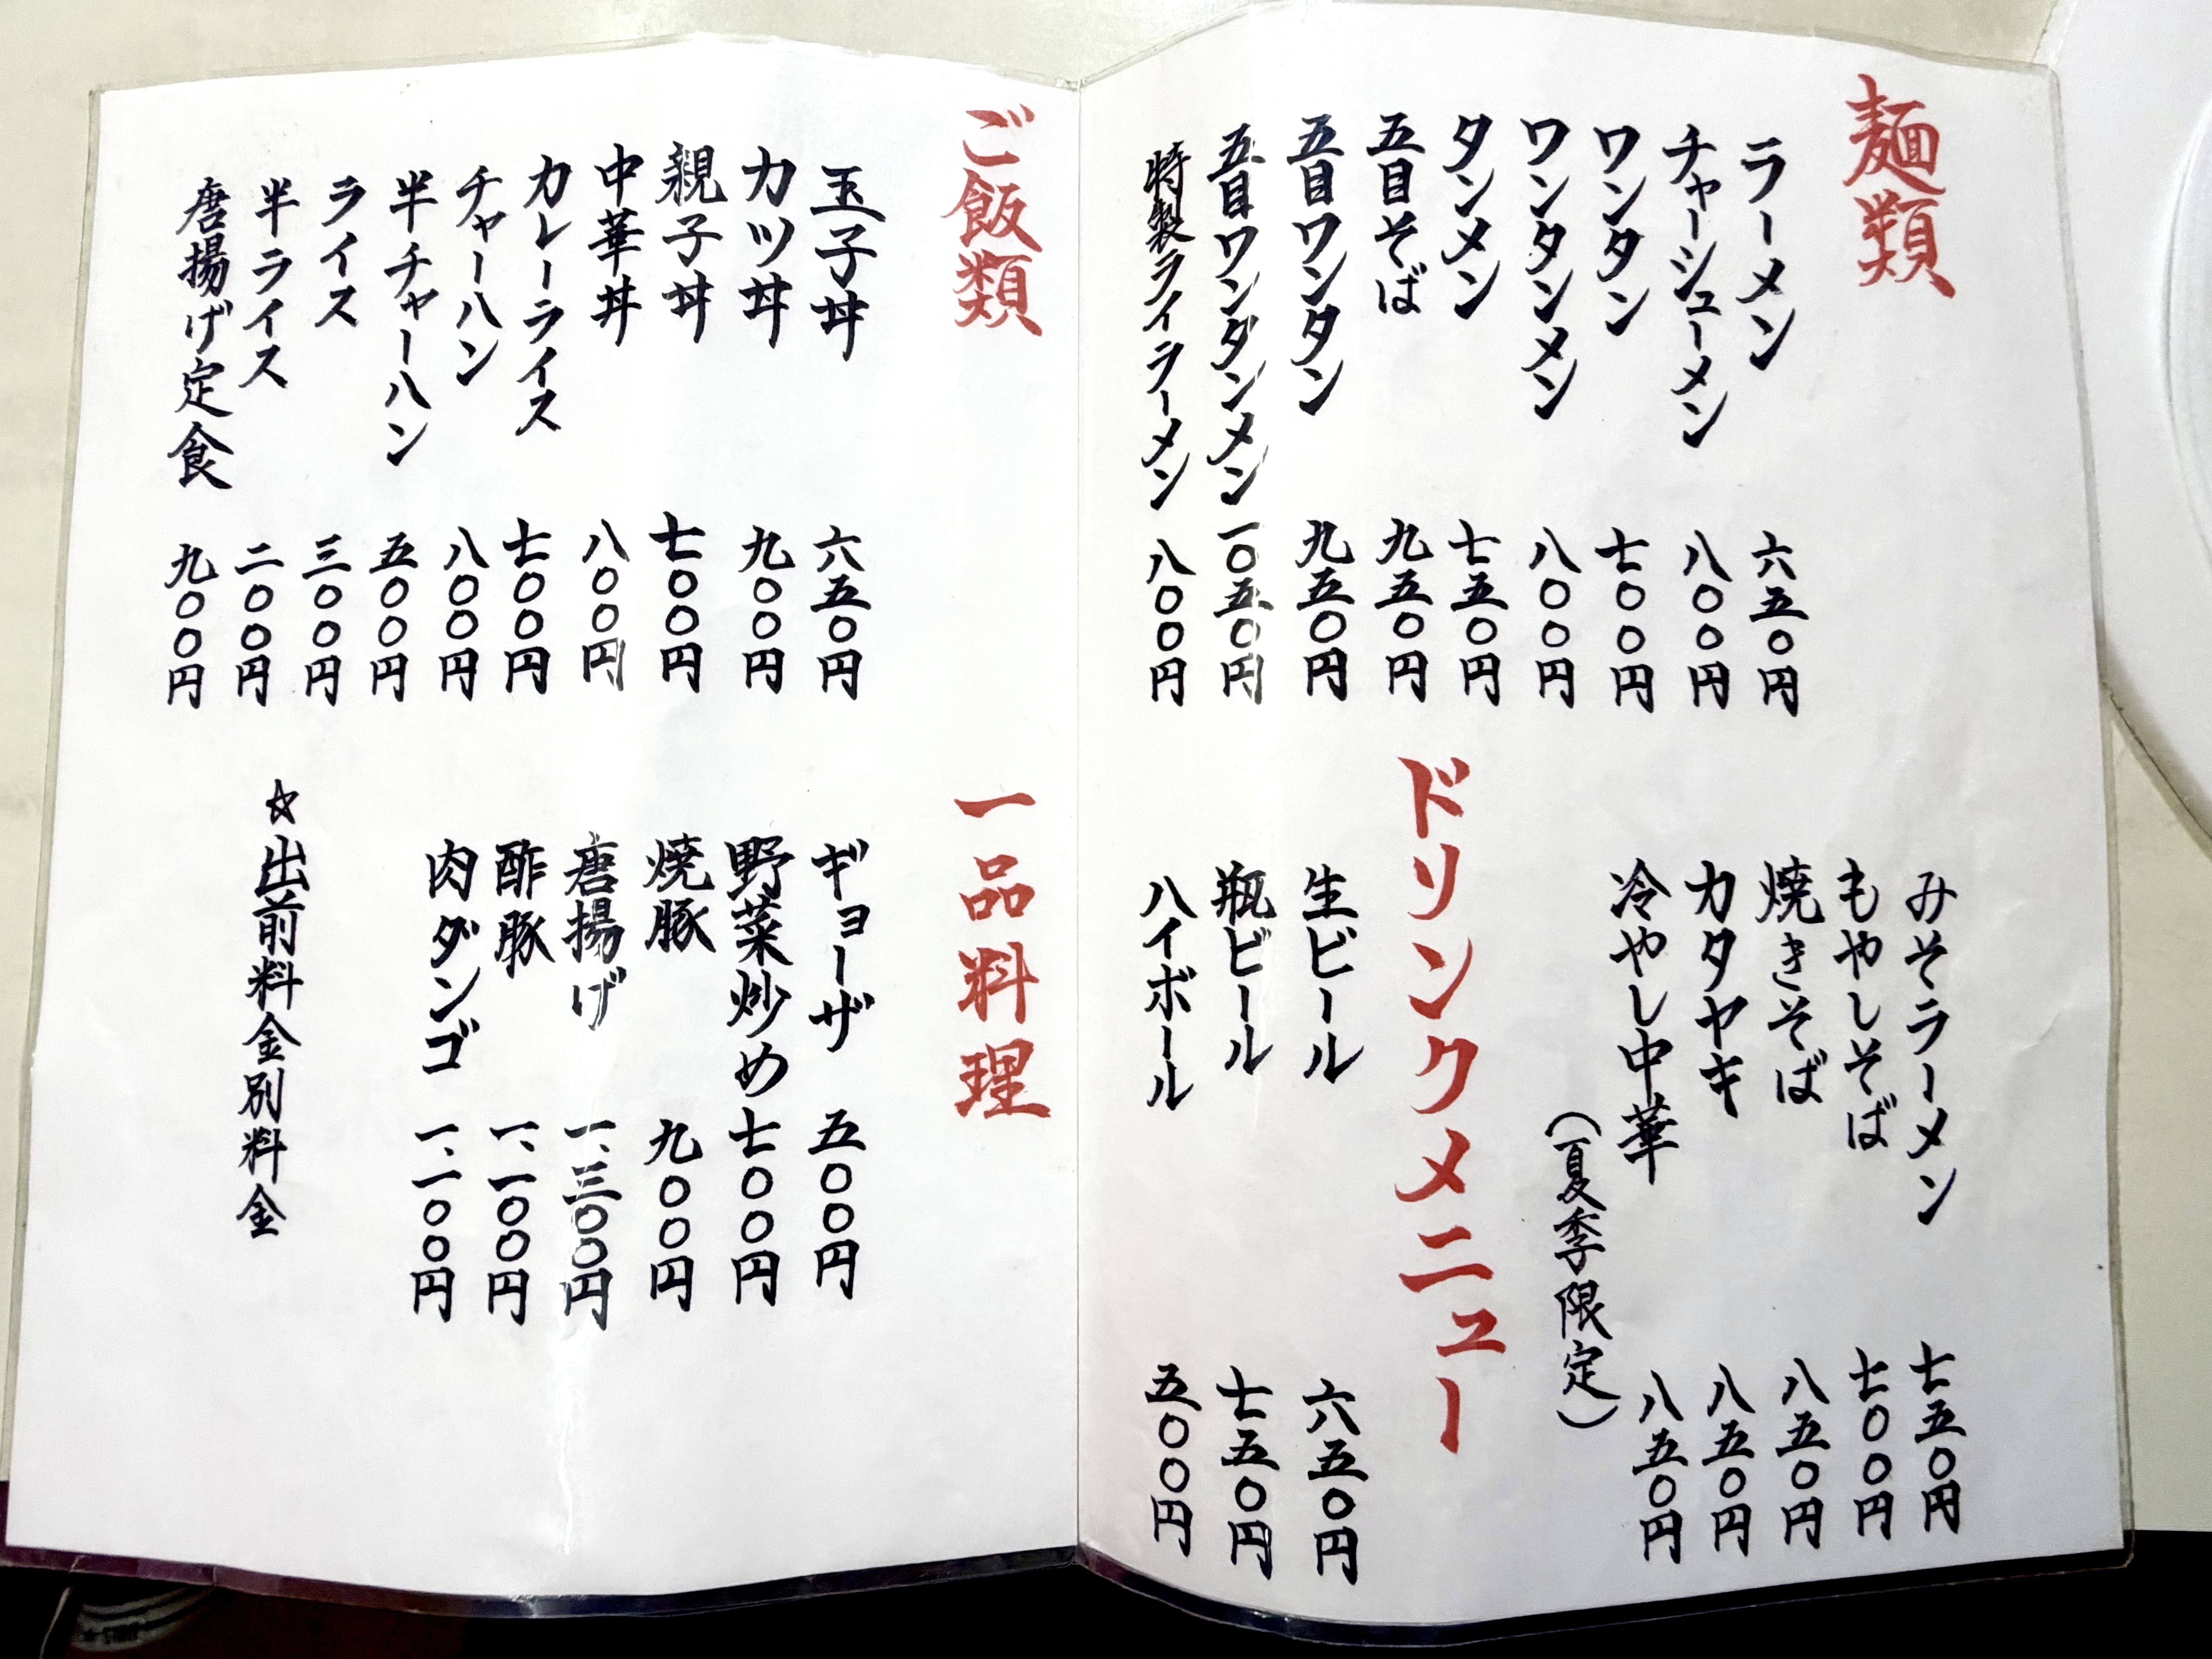 麺類
ラーメン 六五〇円
チャーシューメン 八〇〇円
ワンタン 七〇〇円
ワンタンメン 八〇〇円
タンメン 七五〇円
五目そば 九五〇円
五目ワンタン 九五〇円
五目ワンタンメン 一〇五〇円
特製ライラーメン 八〇〇円
みそラーメン 七五〇円
もやしそば 七〇〇円
焼きそば 八五〇円
カタヤキ 八五〇円
冷やし中華 八五〇円
(夏季限定)
ドリンクメニュー
生ビール 六五〇円
瓶ビール 七五〇円
ハイボール 五〇〇円
ご飯類
玉子丼 六五〇円
カツ丼 九〇〇円
親子丼 七〇〇円
中華丼 八〇〇円
カレーライス 七〇〇円
チャーハン 八〇〇円
半チャーハン 五〇〇円
ライス 三〇〇円
半ライス 二〇〇円
唐揚げ定食 九〇〇円
一品料理
ギョーザ 五〇〇円
野菜炒め 七〇〇円
焼豚 九〇〇円
唐揚げ 一、三〇〇円
酢豚 一、一〇〇円
肉ダンゴ 一、一〇〇円
☆出前料金別料金